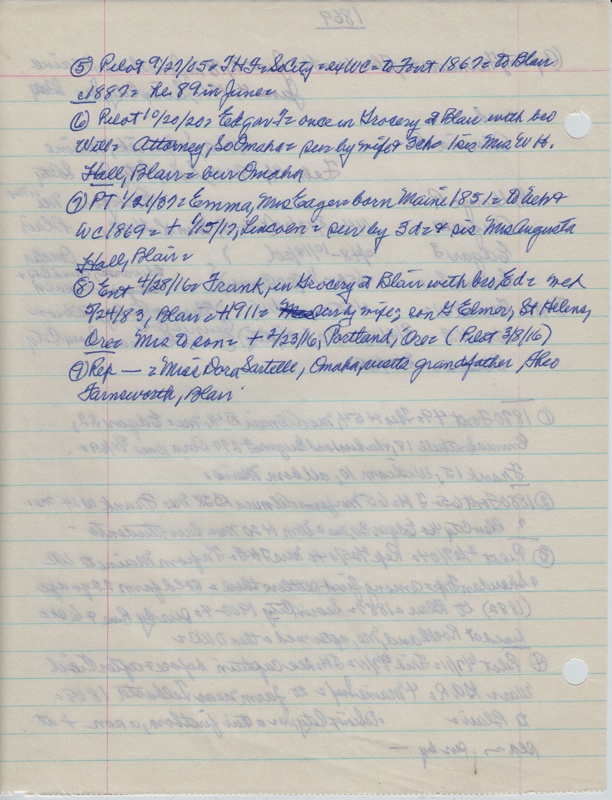 ⑤ Pilot 9/27/05 = T H F = So City = ex WC = to Font 1867 = to Blair
c1887 = he 89 in June =
⑥ Pilot 10/20/20 = Edgar F = once in Grocery at Blair with bro
Will = Attorney, So Omaha = surv by wife & 3 ch = 1 sis Mrs W H.
Hall, Blair = bur Omaha
⑦ PT 1/21/37 = Emma, Mrs Eager = born Maine 1851 = to
WC 1869 = + 1/15/17, Lincoln = surv by 3 d = & sis Mrs Augusta
Hall, Blair =
⑧ Ent 4/28/16 = Frank, in Grocery at Blair with bro, Ed = wed
5/24/83, Blair = +1911 = surv by wife, son G Elmer, St Helens,
Ore = Mrs to son = + 2/23/16, Portland, Ore = (Pilot 3/8/16)
⑨ Rep — = Miss Dora Sartelle, Omaha, visits grandfather,
Farnsworth, Blair